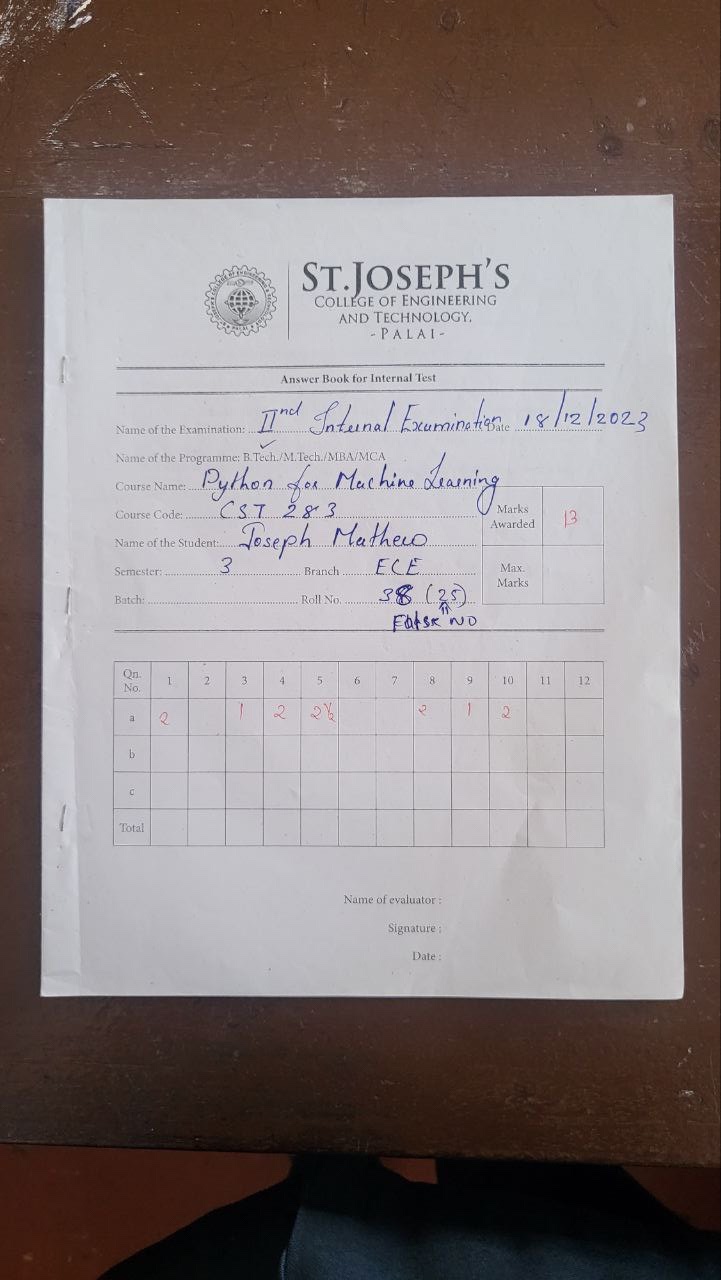 ST.JOSEPH'S
COLLEGE OF ENGINEERING
AND TECHNOLOGY,
- PALAI -
Answer Book for Internal Test
Name of the Examination: IInd Internal Examination Date 18/12/2023
Name of the Programme: B.Tech./M.Tech./MBA/MCA
Course Name: Python for Machine Learning
Course Code: CST 283
Marks Awarded 13
Name of the Student: Joseph Mathew
Semester: 3 Branch ECE
Max. Marks
Batch: Roll No. 38 (25)
NO
Qn. No. 1 2 3 4 5 6 7 8 9 10 11 12
a 2 1 2 2½ 2 1 2
b
c
Total
Name of evaluator :
Signature :
Date :